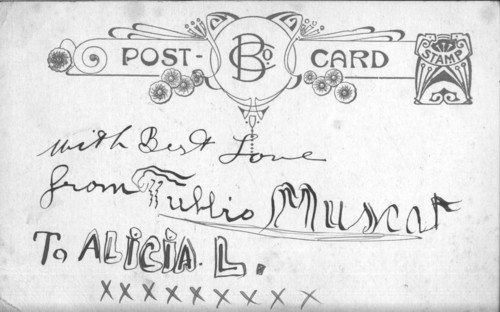 POST- B Co. CARD
STAMP
with Best Love
from Tullio Muscat
To ALICIA. L.
XXXXXXXXX